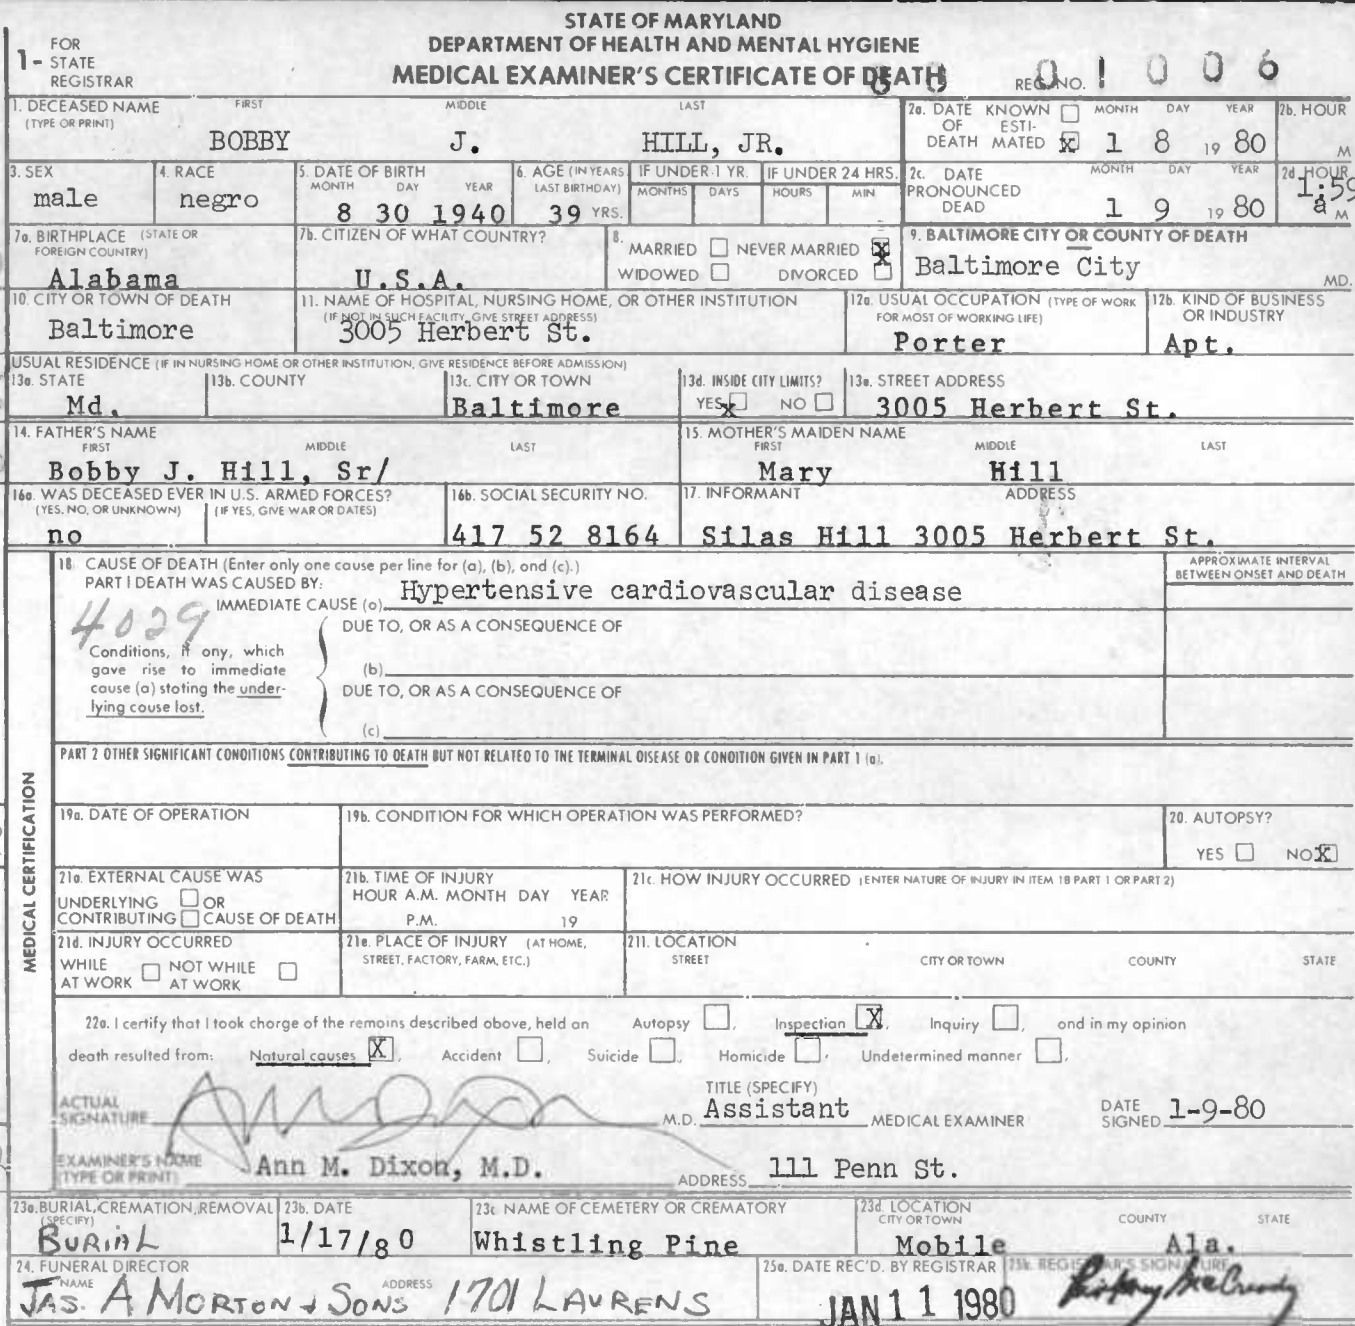 STATE OF MARYLAND
DEPARTMENT OF HEALTH AND MENTAL HYGIENE
MEDICAL EXAMINER'S CERTIFICATE OF DEATH
1- FOR STATE REGISTRAR
REG. NO. 80 01006
1. DECEASED NAME (TYPE OR PRINT) FIRST MIDDLE LAST
BOBBY J. HILL, JR.
2a. DATE OF DEATH KNOWN ☐ ESTIMATED ☒ MONTH DAY YEAR
1 8 19 80
2b. HOUR M
3. SEX
male
4. RACE
negro
5. DATE OF BIRTH MONTH DAY YEAR
8 30 1940
6. AGE (IN YEARS LAST BIRTHDAY)
39 YRS.
IF UNDER 1 YR. MONTHS DAYS
IF UNDER 24 HRS. HOURS MIN
2c. DATE PRONOUNCED DEAD MONTH DAY YEAR
1 9 19 80
2d HOUR
1:59 a M
7a. BIRTHPLACE (STATE OR FOREIGN COUNTRY)
Alabama
7b. CITIZEN OF WHAT COUNTRY?
U.S.A.
8. MARRIED ☐ NEVER MARRIED ☒
WIDOWED ☐ DIVORCED ☐
9. BALTIMORE CITY OR COUNTY OF DEATH
Baltimore City MD.
10. CITY OR TOWN OF DEATH
Baltimore
11. NAME OF HOSPITAL, NURSING HOME, OR OTHER INSTITUTION
(IF NOT IN SUCH FACILITY, GIVE STREET ADDRESS)
3005 Herbert St.
12a. USUAL OCCUPATION (TYPE OF WORK FOR MOST OF WORKING LIFE)
Porter
12b. KIND OF BUSINESS OR INDUSTRY
Apt.
USUAL RESIDENCE (IF IN NURSING HOME OR OTHER INSTITUTION, GIVE RESIDENCE BEFORE ADMISSION)
13a. STATE
Md.
13b. COUNTY
13c. CITY OR TOWN
Baltimore
13d. INSIDE CITY LIMITS?
YES ☒ NO ☐
13e. STREET ADDRESS
3005 Herbert St.
14. FATHER'S NAME FIRST MIDDLE LAST
Bobby J. Hill, Sr/
15. MOTHER'S MAIDEN NAME FIRST MIDDLE LAST
Mary Hill
16a. WAS DECEASED EVER IN U.S. ARMED FORCES?
(YES, NO, OR UNKNOWN) (IF YES, GIVE WAR OR DATES)
no
16b. SOCIAL SECURITY NO.
417 52 8164
17. INFORMANT ADDRESS
Silas Hill 3005 Herbert St.
MEDICAL CERTIFICATION
18 CAUSE OF DEATH (Enter only one cause per line for (a), (b), and (c).)
APPROXIMATE INTERVAL BETWEEN ONSET AND DEATH
PART I DEATH WAS CAUSED BY:
IMMEDIATE CAUSE (a) Hypertensive cardiovascular disease
4029
DUE TO, OR AS A CONSEQUENCE OF
Conditions, if any, which gave rise to immediate cause (a) stating the underlying cause last.
(b)
DUE TO, OR AS A CONSEQUENCE OF
(c)
PART 2 OTHER SIGNIFICANT CONDITIONS CONTRIBUTING TO DEATH BUT NOT RELATED TO THE TERMINAL DISEASE OR CONDITION GIVEN IN PART 1 (a).
19a. DATE OF OPERATION
19b. CONDITION FOR WHICH OPERATION WAS PERFORMED?
20. AUTOPSY?
YES ☐ NO ☒
21a. EXTERNAL CAUSE WAS
UNDERLYING ☐ OR
CONTRIBUTING ☐ CAUSE OF DEATH
21b. TIME OF INJURY
HOUR A.M. MONTH DAY YEAR
P.M. 19
21c. HOW INJURY OCCURRED (ENTER NATURE OF INJURY IN ITEM 18 PART 1 OR PART 2)
21d. INJURY OCCURRED
WHILE AT WORK ☐ NOT WHILE AT WORK ☐
21e. PLACE OF INJURY (AT HOME, STREET, FACTORY, FARM, ETC.)
21f. LOCATION
STREET CITY OR TOWN COUNTY STATE
22a. I certify that I took charge of the remains described above, held an Autopsy ☐, Inspection ☒, Inquiry ☐, and in my opinion
death resulted from: Natural causes ☒, Accident ☐, Suicide ☐, Homicide ☐, Undetermined manner ☐,
ACTUAL SIGNATURE Ann M Dixon M.D.
TITLE (SPECIFY)
Assistant MEDICAL EXAMINER
DATE SIGNED 1-9-80
EXAMINER'S NAME (TYPE OR PRINT) Ann M. Dixon, M.D.
ADDRESS 111 Penn St.
23a. BURIAL, CREMATION, REMOVAL (SPECIFY)
BURIAL
23b. DATE
1/17/80
23c NAME OF CEMETERY OR CREMATORY
Whistling Pine
23d. LOCATION CITY OR TOWN COUNTY STATE
Mobile Ala.
24. FUNERAL DIRECTOR
NAME ADDRESS
JAS. A MORTON & SONS 1701 LAURENS
25a. DATE REC'D. BY REGISTRAR
JAN 11 1980
25b. REGISTRAR'S SIGNATURE